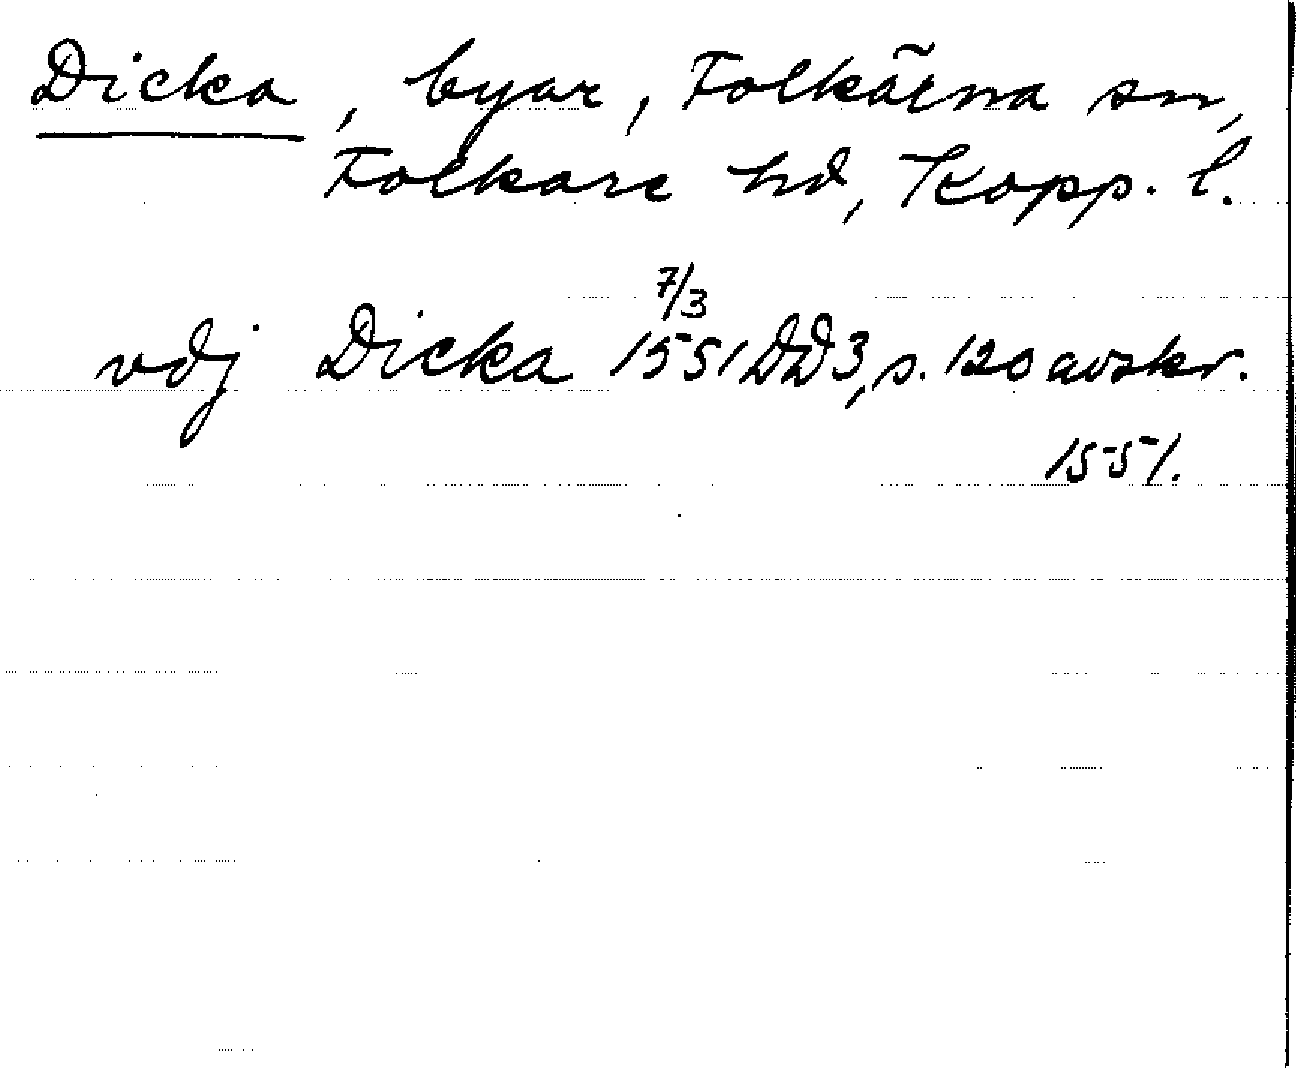 Dicka, byar, Folkärna sn,
Folkare hd, Kopp. l.
7/3
vdj Dicka 1551 DD3, s. 120 avskr.
1551.